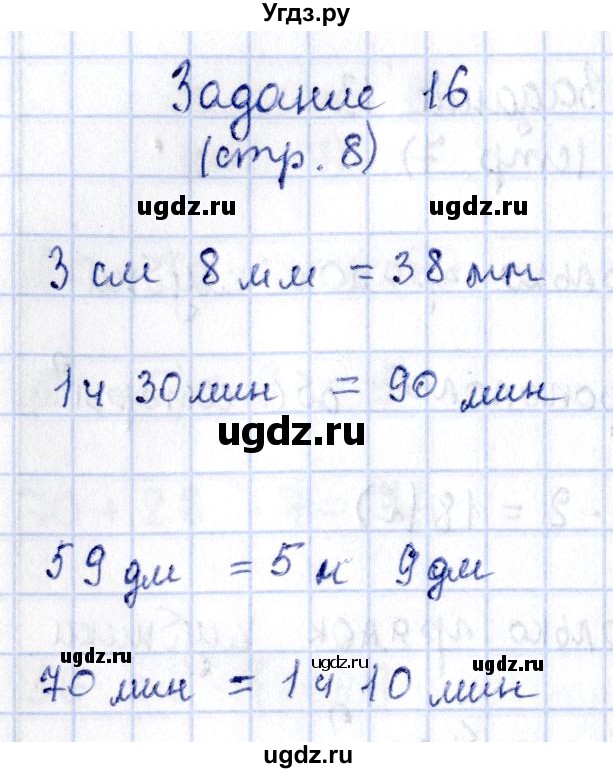 Угдз.ру
Задание 16
(стр. 8)
ugdz.ru ugdz.ru
3 см 8 мм = 38 мм
1 ч 30 мин = 90 мин
ugdz.ru
59 дм = 5 м 9 дм
ugdz.ru ugdz.ru ugdz.ru
70 мин = 1 ч 10 мин
ugdz.ru